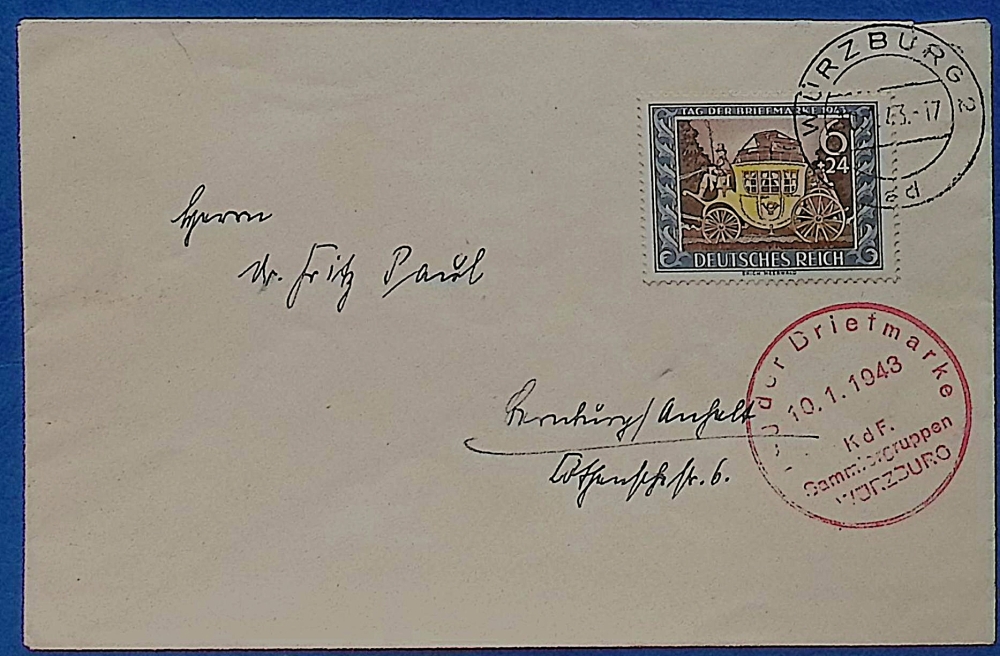 WÜRZBURG 2
43.-17
TAG DER BRIEFMARKE 1943
6
+24
DEUTSCHES REICH
ERICH MEERWALD
Herrn
Dr. Fritz Paul
Bernburg/Anhalt
Cöthenschestr. 6.
der Briefmarke
10.1.1943
KdF.
Sammlergruppen
WÜRZBURG